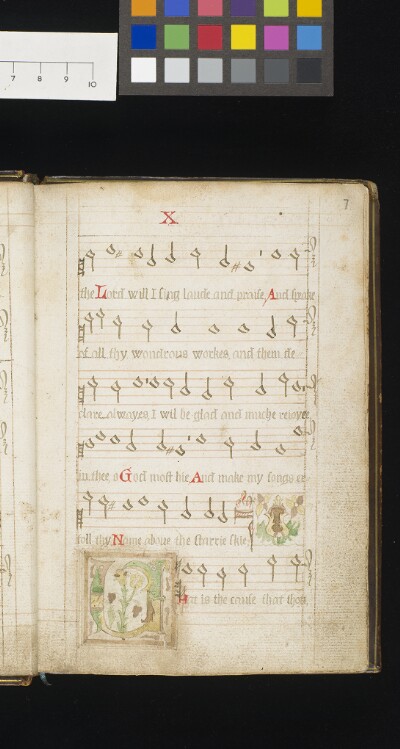 7 8 9 10
7
X
the Lord will I sing laude and praise And speake
of all thy wondrous workes, and them de
clare alwayes, I wil be glad and muche reioyce
in thee o God most hie And make my songs ex
toll thy Name above the starrie skie
at is the cause that thou